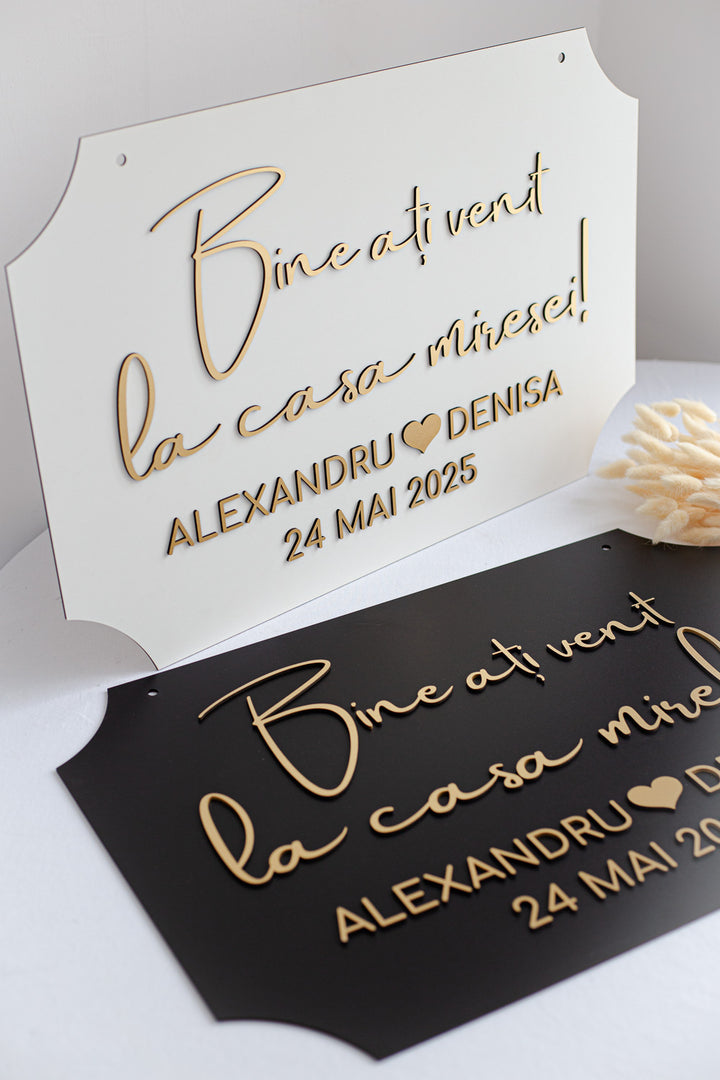 Bine ați venit
la casa miresei!
ALEXANDRU ♥ DENISA
24 MAI 2025
Bine ați venit
la casa mirel
ALEXANDRU ♥ D
24 MAI 20